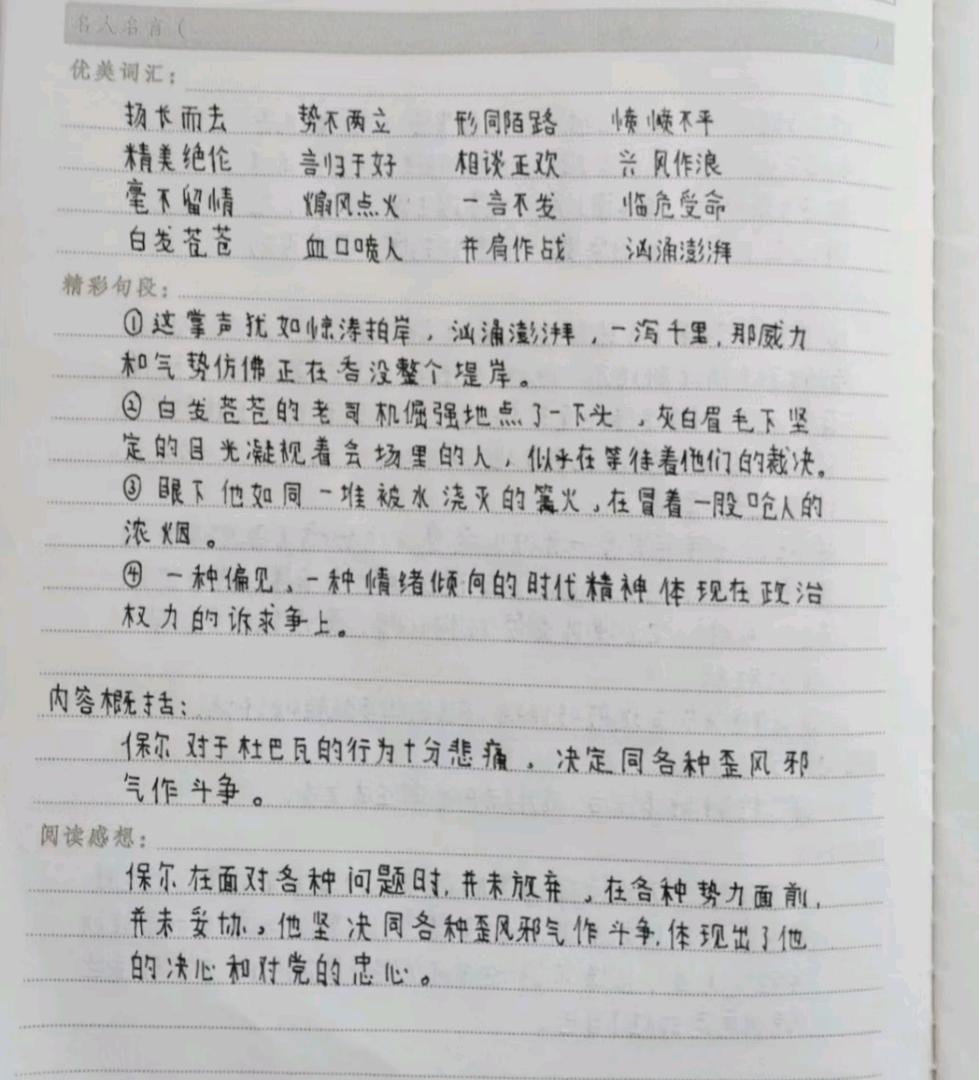 名人名言（ ）
优美词汇：
扬长而去 势不两立 形同陌路 愤愤不平
精美绝伦 言归于好 相谈正欢 兴风作浪
毫不留情 煽风点火 一言不发 临危受命
白发苍苍 血口喷人 并肩作战 汹涌澎湃
精彩句段：
①这掌声犹如惊涛拍岸，汹涌澎湃，一泻千里，那威力
和气势仿佛正在吞没整个堤岸。
②白发苍苍的老司机倔强地点了一下头，灰白眉毛下坚
定的目光凝视着会场里的人，似乎在等待着他们的裁决。
③眼下他如同一堆被水浇灭的篝火，在冒着一股呛人的
浓烟。
④一种偏见，一种情绪倾向的时代精神体现在政治
权力的诉求争上。
内容概括：
保尔对于杜巴瓦的行为十分悲痛，决定同各种歪风邪
气作斗争。
阅读感想：
保尔在面对各种问题时，并未放弃，在各种势力面前，
并未妥协。他坚决同各种歪风邪气作斗争，体现出了他
的决心和对党的忠心。